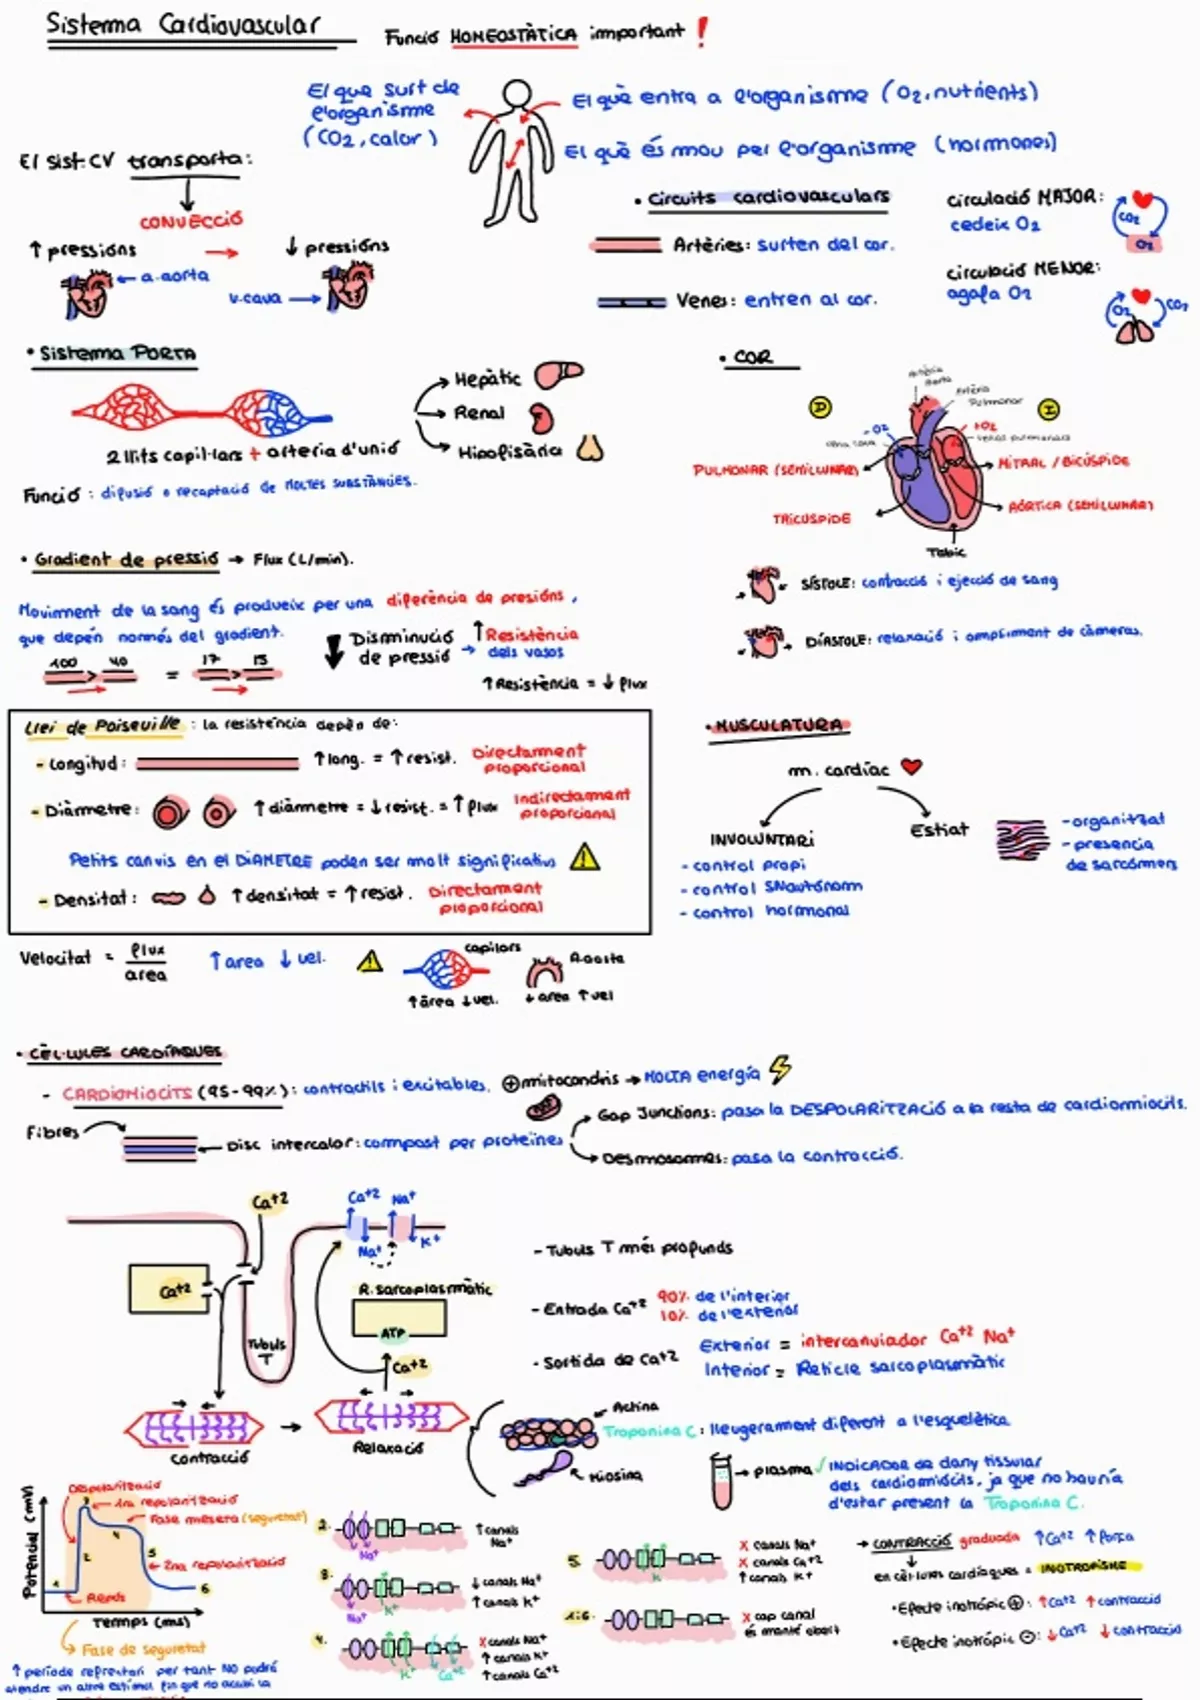 Sistema Cardiovascular
Funció HOMEOSTÀTICA important !
El que surt de
l'organisme
(CO2, calor)
El què entra a l'organisme (O2, nutrients)
El què és mou per l'organisme (hormones)
El sist. CV transporta:
CONVECCIÓ
↑ pressións → ↓ pressións
a. aorta
v. cava
• Circuits cardiovasculars
Artèries: surten del cor.
Venes: entren al cor.
circulació MAJOR:
cedeix O2
CO2
O2
circulació MENOR:
agafa O2
O2
CO2
• Sistema PORTA
Hepàtic
Renal
Hipofisària
2 llits capil·lars + arteria d'unió
Funció: difusió o recaptació de MOLTES SUBSTÀNCIES.
• COR
Artèria
Aorta
Artèria
Pulmonar
D
I
- O2
+O2
vena cava
venas pulmonars
PULMONAR (SEMILUNAR)
MITRAL / BICÚSPIDE
TRICUSPIDE
AÒRTICA (SEMILUNAR)
Tabic
SÍSTOLE: contracció i ejecció de sang
DIÀSTOLE: relaxació i ompliment de càmeras.
• Gradient de pressió → Flux (L/min).
Moviment de la sang és produeix per una diferència de presións,
que depèn només del gradient.
100 > 40 = 17 > 15
Disminució
de pressió
→
↑ Resistència
dels vasos
↑ Resistència = ↓ flux
Llei de Poiseuille: la resistència depèn de:
- Longitud: ↑ long. = ↑ resist. Directament
proporcional
- Diàmetre: ↑ diàmetre = ↓ resist. = ↑ flux Indirectament
proporcional
Petits canvis en el DIÀMETRE poden ser molt significatius
- Densitat: ↑ densitat = ↑ resist. Directament
proporcional
Velocitat = flux
area
↑ area ↓ vel.
capilars
↑ àrea ↓ vel.
Aorta
↓ area ↑ vel
• MUSCULATURA
m. cardíac
INVOLUNTARI
- control propi
- control SNautónom
- control hormonal
Estiat
- organitzat
- presencia
de sarcómers
• CÈL·LULES CARDÍAQUES
- CARDIOMIOCITS (95-99%): contractils i excitables. ⊕ mitocondris → MOLTA energía
Fibres
Disc intercalar: compost per proteines
Gap Junctions: pasa la DESPOLARITZACIÓ a la resta de cardiomiocits.
Desmosomes: pasa la contracció.
Ca+2
Ca+2
Na+
Na+
K+
Ca+2
R. sarcoplasmàtic
ATP
Ca+2
Tubuls
T
Contracció
Relaxació
- Tubuls T més profunds
- Entrada Ca+2 90% de l'interior
10% de l'exterior
- Sortida de Ca+2
Exterior = intercanviador Ca+2 Na+
Interior = Reticle sarcoplasmàtic
Actina
Troponina C: lleugerament diferent a l'esquelètica
Miosina
→ plasma
INDICADOR de dany tissular
dels cardiomiòcits, ja que no hauria
d'estar present la Troponina C.
Potencial (mV)
Despolarització
1na repolarització
Fase meseta (seguretat)
2na repolarització
Repòs
1
2
3
4
5
6
Temps (ms)
Fase de seguretat
↑ període refractari per tant NO podrá
atendre un altre estímul fin que no acabi la
2.
Na+
↑ canals
Na+
3.
Na+
K+
↓ canals Na+
↑ canals K+
4.
K+
Ca+2
X canals Na+
↑ canals K+
↑ canals Ca+2
5.
K+
X canals Na+
X canals Ca+2
↑ canals K+
1:6.
X cap canal
és manté obert
→ CONTRACCIÓ graduada ↑Ca+2 ↑ força
en cèl·lules cardíaques = INOTROPISME
• Efecte inotrópic ⊕: ↑Ca+2 ↑ contracció
• Efecte inotrópic ⊖: ↓Ca+2 ↓ contracció